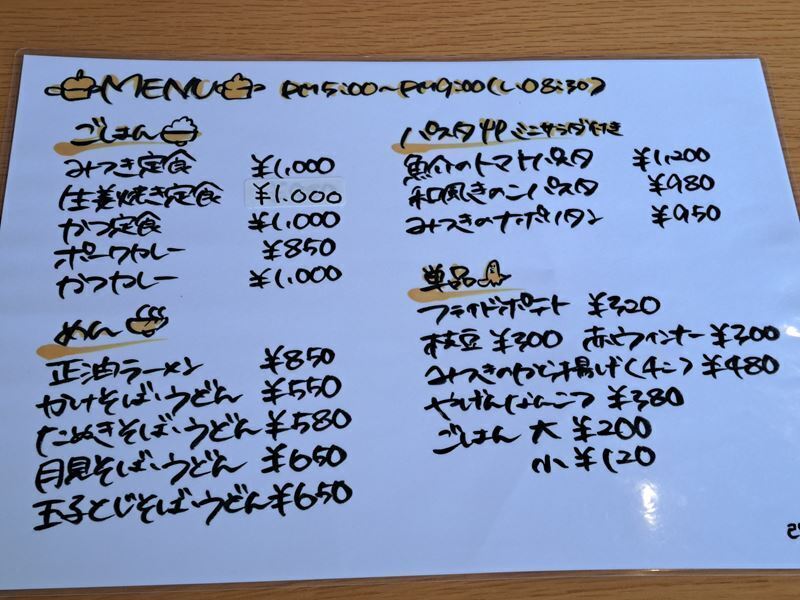 MENU PM5:00～PM9:00(L.O8:30)
ごはん
みつき定食 ¥1,000
生姜焼き定食 ¥1,000
かつ定食 ¥1,000
ポークカレー ¥850
かつカレー ¥1,000
めん
正油ラーメン ¥850
かけそば・うどん ¥550
たぬきそば・うどん ¥580
月見そば・うどん ¥650
玉子とじそば・うどん ¥650
パスタ ミニサラダ付き
魚介のトマトパスタ ¥1,200
和風きのこパスタ ¥980
みつきのナポリタン ¥950
単品
フライドポテト ¥320
枝豆 ¥300 赤ウインナー ¥300
みつきのから揚げ(4こ) ¥480
やげんなんこつ ¥380
ごはん 大 ¥200
小 ¥120